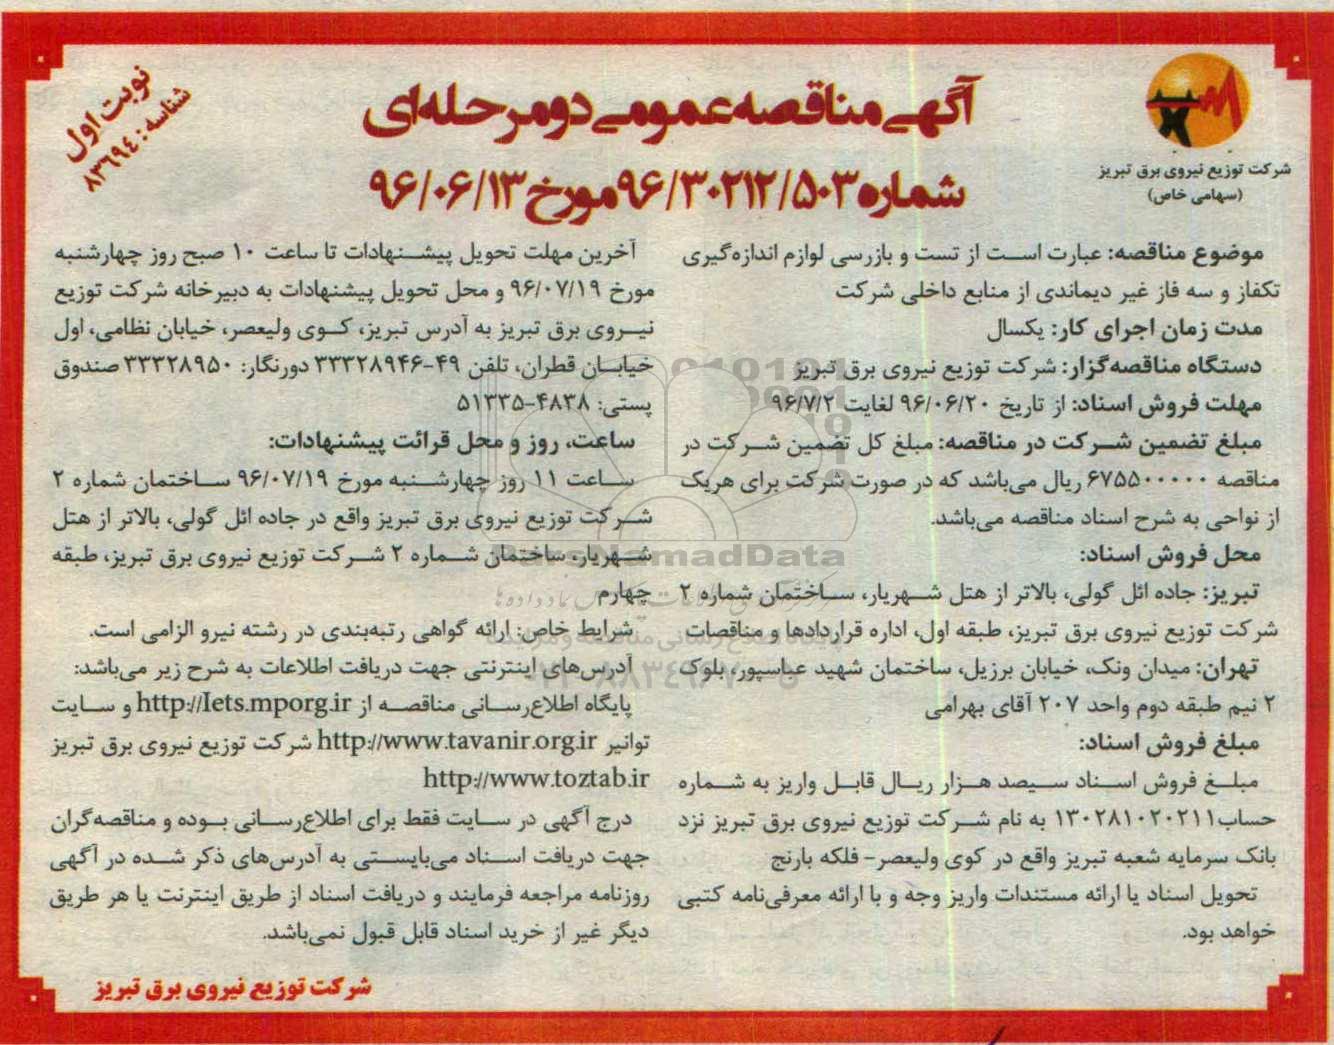 شرکت توزیع نیروی برق تبریز
(سهامی خاص)
آگهی مناقصه عمومی دو مرحله‌ای
شماره ۹۶/۳۰۲۱۲/۵۰۳ مورخ ۹۶/۰۶/۱۳
نوبت اول
شناسه: ۸۳۶۹۴
موضوع مناقصه: عبارت است از تست و بازرسی لوازم اندازه‌گیری
تکفاز و سه فاز غیر دیماندی از منابع داخلی شرکت
مدت زمان اجرای کار: یکسال
دستگاه مناقصه‌گزار: شرکت توزیع نیروی برق تبریز
مهلت فروش اسناد: از تاریخ ۹۶/۰۶/۲۰ لغایت ۹۶/۷/۲
مبلغ تضمین شرکت در مناقصه: مبلغ کل تضمین شرکت در
مناقصه ۶۷۵۵۰۰۰۰۰ ریال می‌باشد که در صورت شرکت برای هریک
از نواحی به شرح اسناد مناقصه می‌باشد.
محل فروش اسناد:
تبریز: جاده ائل گولی، بالاتر از هتل شهریار، ساختمان شماره ۲
شرکت توزیع نیروی برق تبریز، طبقه اول، اداره قراردادها و مناقصات
تهران: میدان ونک، خیابان برزیل، ساختمان شهید عباسپور، بلوک
۲ نیم طبقه دوم واحد ۲۰۷ آقای بهرامی
مبلغ فروش اسناد:
مبلغ فروش اسناد سیصد هزار ریال قابل واریز به شماره
حساب۱۳۰۲۸۱۰۲۰۲۱۱ به نام شرکت توزیع نیروی برق تبریز نزد
بانک سرمایه شعبه تبریز واقع در کوی ولیعصر- فلکه بارنج
تحویل اسناد با ارائه مستندات واریز وجه و با ارائه معرفی‌نامه کتبی
خواهد بود.
آخرین مهلت تحویل پیشنهادات تا ساعت ۱۰ صبح روز چهارشنبه
مورخ ۹۶/۰۷/۱۹ و محل تحویل پیشنهادات به دبیرخانه شرکت توزیع
نیروی برق تبریز به آدرس تبریز، کوی ولیعصر، خیابان نظامی، اول
خیابان قطران، تلفن ۴۹-۳۳۳۲۸۹۴۶ دورنگار: ۳۳۳۲۸۹۵۰ صندوق
پستی: ۴۸۳۸-۵۱۳۳۵
ساعت، روز و محل قرائت پیشنهادات:
ساعت ۱۱ روز چهارشنبه مورخ ۹۶/۰۷/۱۹ ساختمان شماره ۲
شرکت توزیع نیروی برق تبریز واقع در جاده ائل گولی، بالاتر از هتل
شهریار، ساختمان شماره ۲ شرکت توزیع نیروی برق تبریز، طبقه
چهارم
شرایط خاص: ارائه گواهی رتبه‌بندی در رشته نیرو الزامی است.
آدرس‌های اینترنتی جهت دریافت اطلاعات به شرح زیر می‌باشد:
پایگاه اطلاع‌رسانی مناقصه از http://Iets.mporg.ir و سایت
توانیر http://www.tavanir.org.ir شرکت توزیع نیروی برق تبریز
http://www.toztab.ir
درج آگهی در سایت فقط برای اطلاع‌رسانی بوده و مناقصه‌گران
جهت دریافت اسناد می‌بایستی به آدرس‌های ذکر شده در آگهی
روزنامه مراجعه فرمایند و دریافت اسناد از طریق اینترنت یا هر طریق
دیگر غیر از خرید اسناد قابل قبول نمی‌باشد.
شرکت توزیع نیروی برق تبریز
ParsNamadData